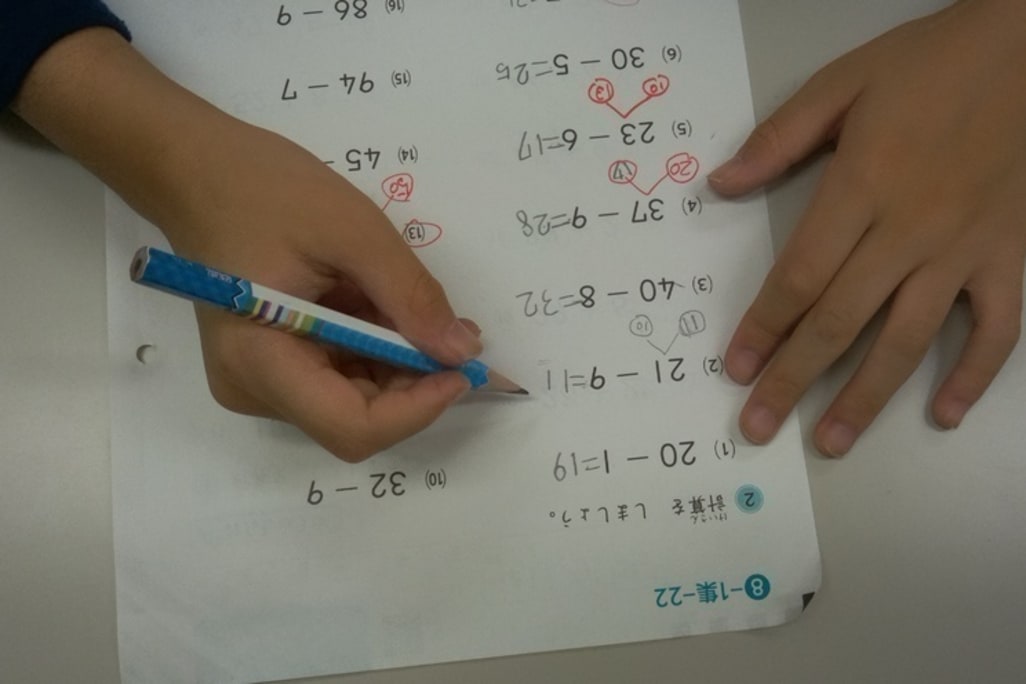 8-1集-22
けいさん
2 計算を しましょう。
(1) 20 − 1=19
(2) 21 − 9=11
11 10
(3) 40 − 8=32
(4) 37 − 9=28
20 17
(5) 23 − 6=17
10 13
(6) 30 − 5=25
(10) 32 − 9
(13)
50
(14) 45 −
(15) 94 − 7
(16) 86 − 9